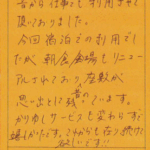 昔から仕事でも利用させて
頂いておりました。
今回宿泊での利用でし
たが、朝食会場もリニュー
アルされており、座敷が
昔の
思い出とに残っています。
かわらずサービスも変わらず、
嬉しかったです。これからも在り続けて
欲しいです!!